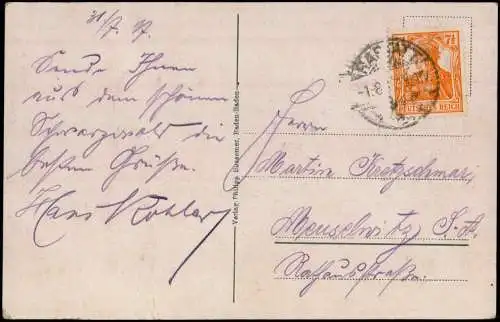 31/7. 17.
Sende Ihnen
aus dem schönen
Schwarzwald die
besten Grüße.
Hans Kohler
Verlag Philipp Bussemer, Baden-Baden.
RASTATT
-1.8
7½
DEUTSCHES REICH
Herrn
Martin Kretzschmar,
Meuselwitz, S.-A.
Rathausstraße.